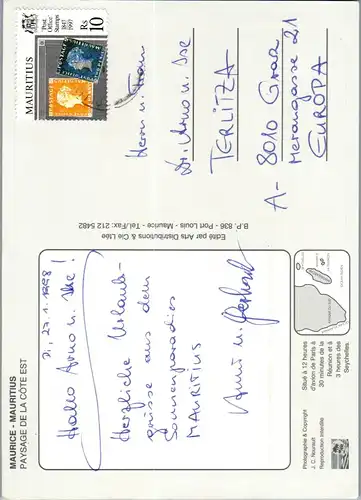 MAURICE - MAURITIUS
PAYSAGE DE LA CÔTE EST
27.1.1998
Hallo Arno u. Ilse!
Herzliche Urlaubs-
grüsse aus dem
Sonnenparadies
MAURITIUS
Photographie & Copyright
J. C. Nourault
Reproduction interdite
Situé à 12 heures
d'avion de Paris à
30 minutes de la
Réunion et à
3 heures des
Seychelles.
Edité par Arts Distributions & Cie Ltée
B.P. 836 - Port Louis - Maurice - Tel./Fax: 212 5482
MAURITIUS
Post
Office
Stamps
1847
1997
Rs
10
POSTAGE
POSTAGE
Herrn u. Frau
Dr. Arno u. Ilse
TERLITZA
A- 8010 Graz
Merangasse 21
EUROPA